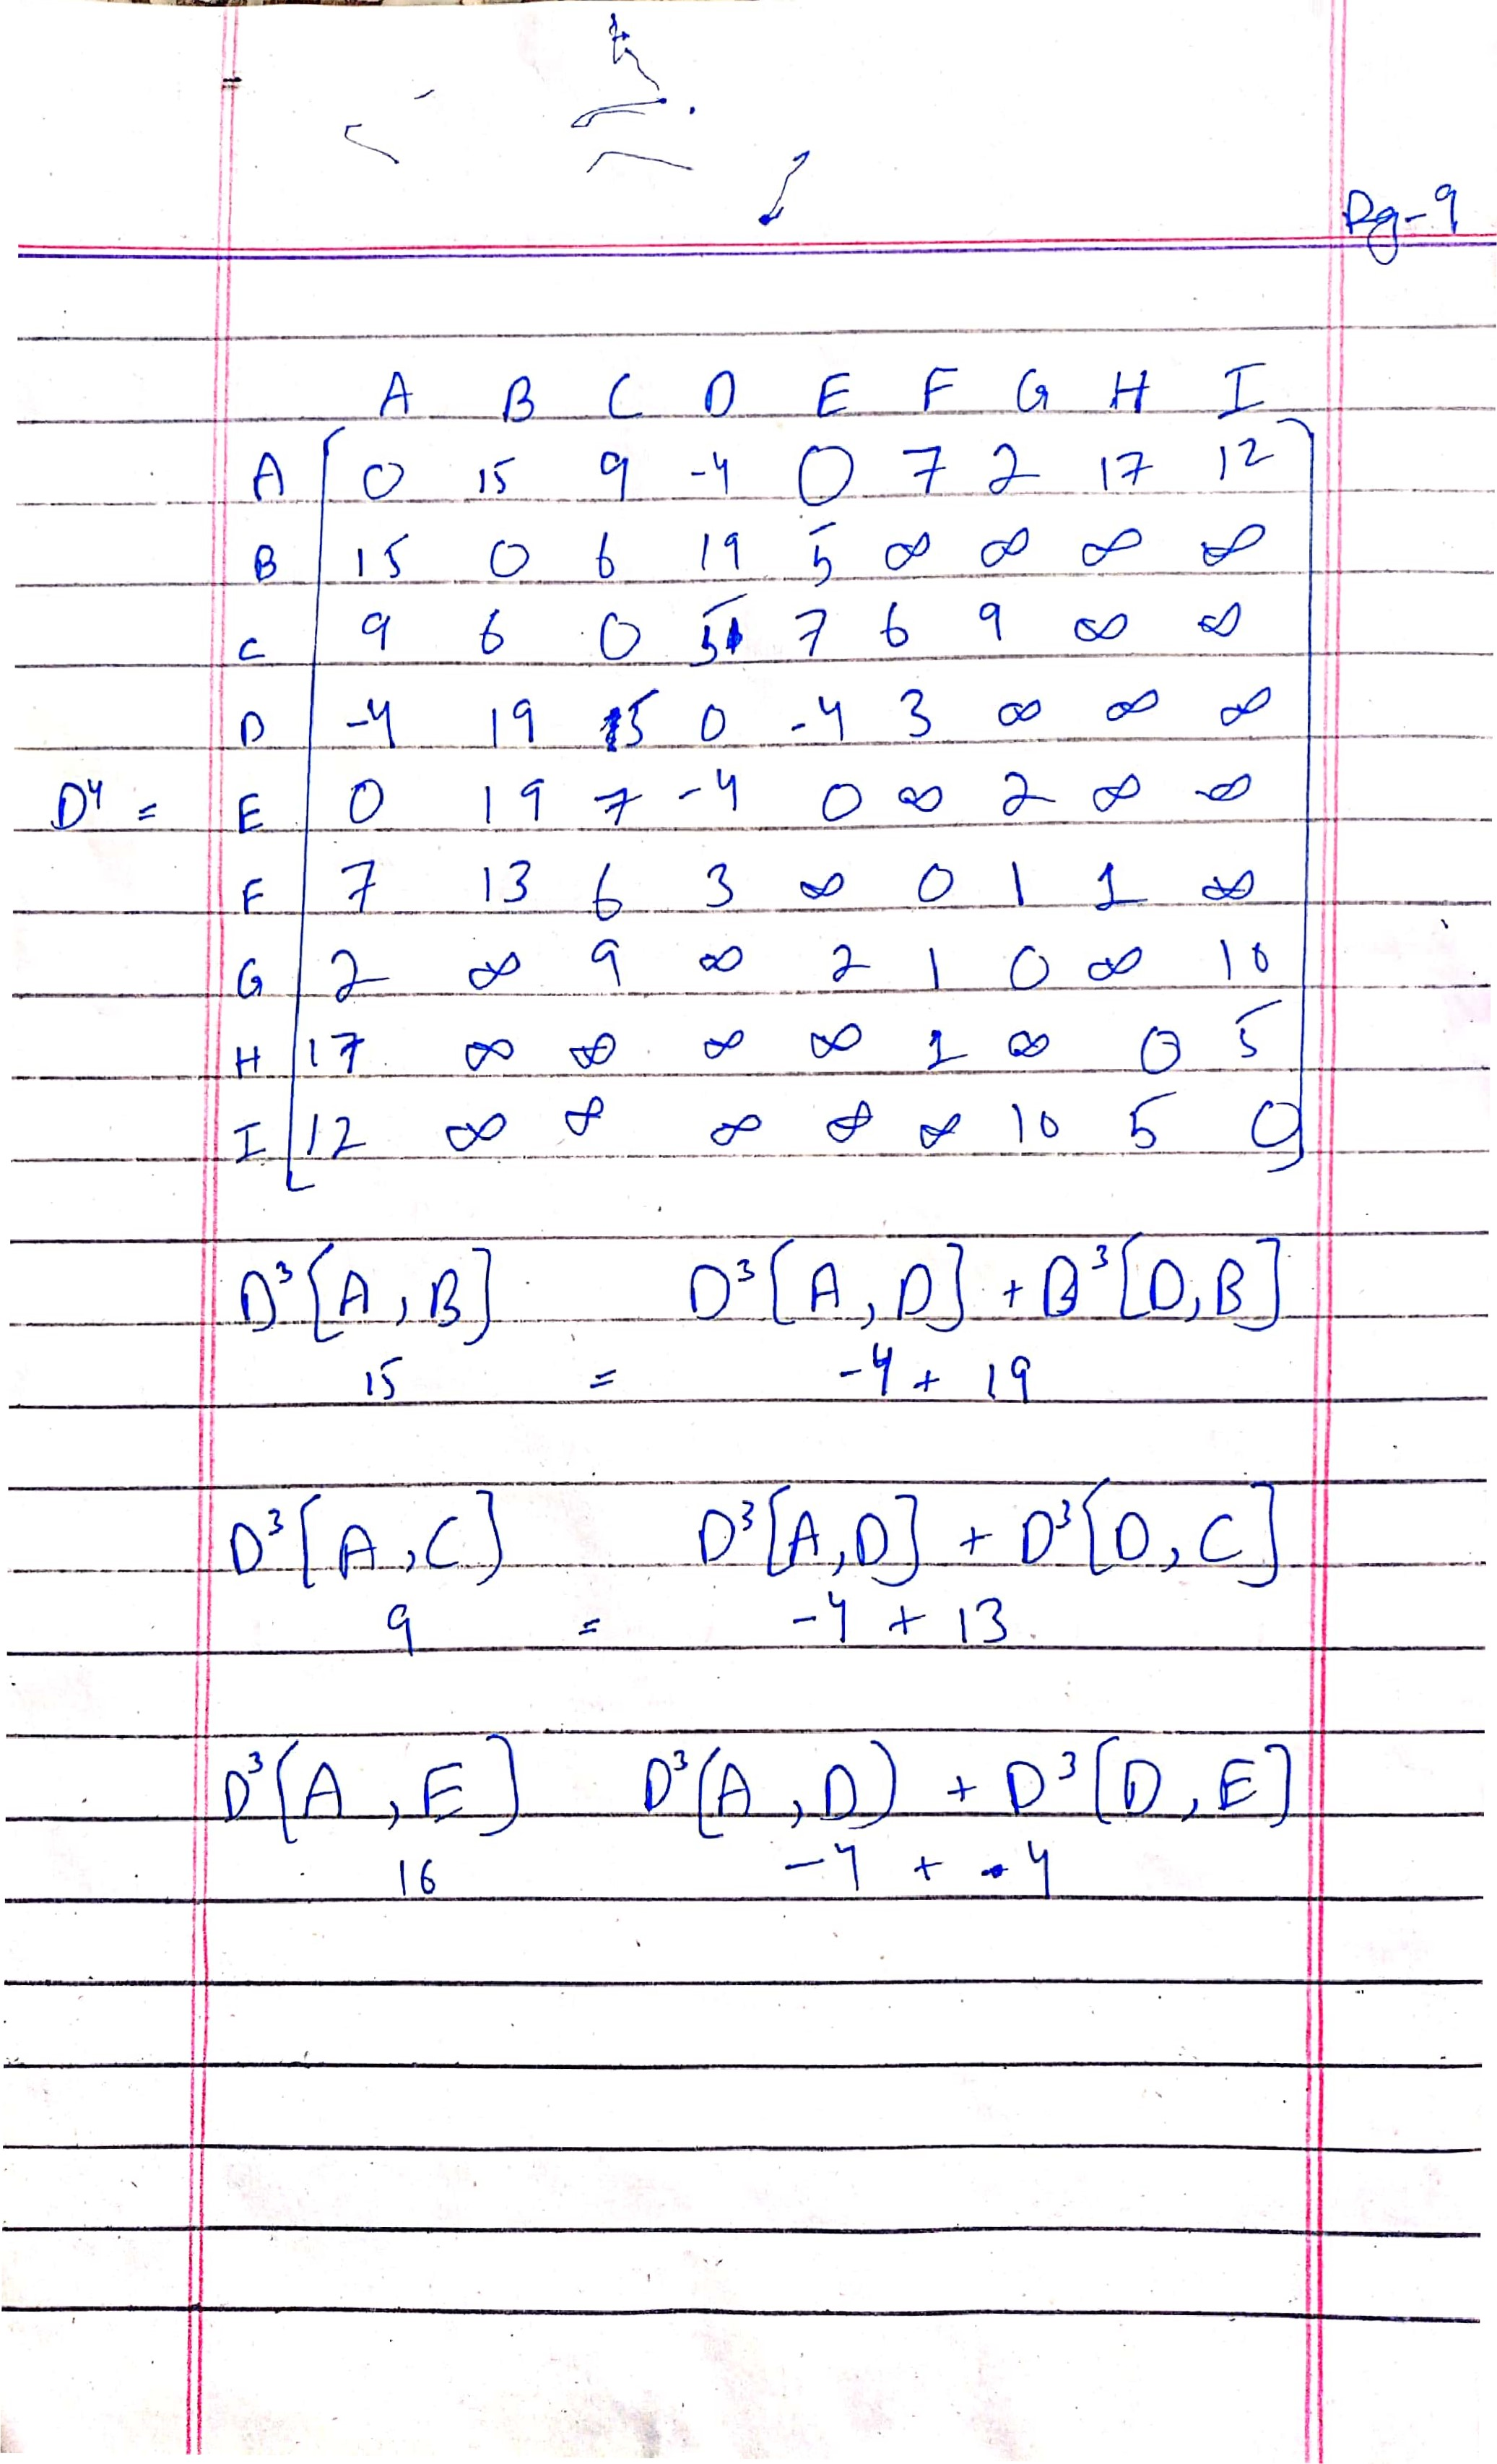 Pg-9
A B C D E F G H I
A 0 15 9 -4 0 7 2 17 12
B 15 0 6 19 5 ∞ ∞ ∞ ∞
C 9 6 0 5 7 6 9 ∞ ∞
D -4 19 5 0 -4 3 ∞ ∞ ∞
D⁴ = E 0 19 7 -4 0 ∞ 2 ∞ ∞
F 7 13 6 3 ∞ 0 1 1 ∞
G 2 ∞ 9 ∞ 2 1 0 ∞ 10
H 17 ∞ ∞ ∞ ∞ 1 ∞ 0 5
I 12 ∞ ∞ ∞ ∞ ∞ 10 5 0
D³[A,B] D³[A,D] + D³[D,B]
15 = -4 + 19
D³[A,C] D³[A,D] + D³[D,C]
9 = -4 + 13
D³[A,E] D³(A,D) + D³[D,E]
16 -4 + -4